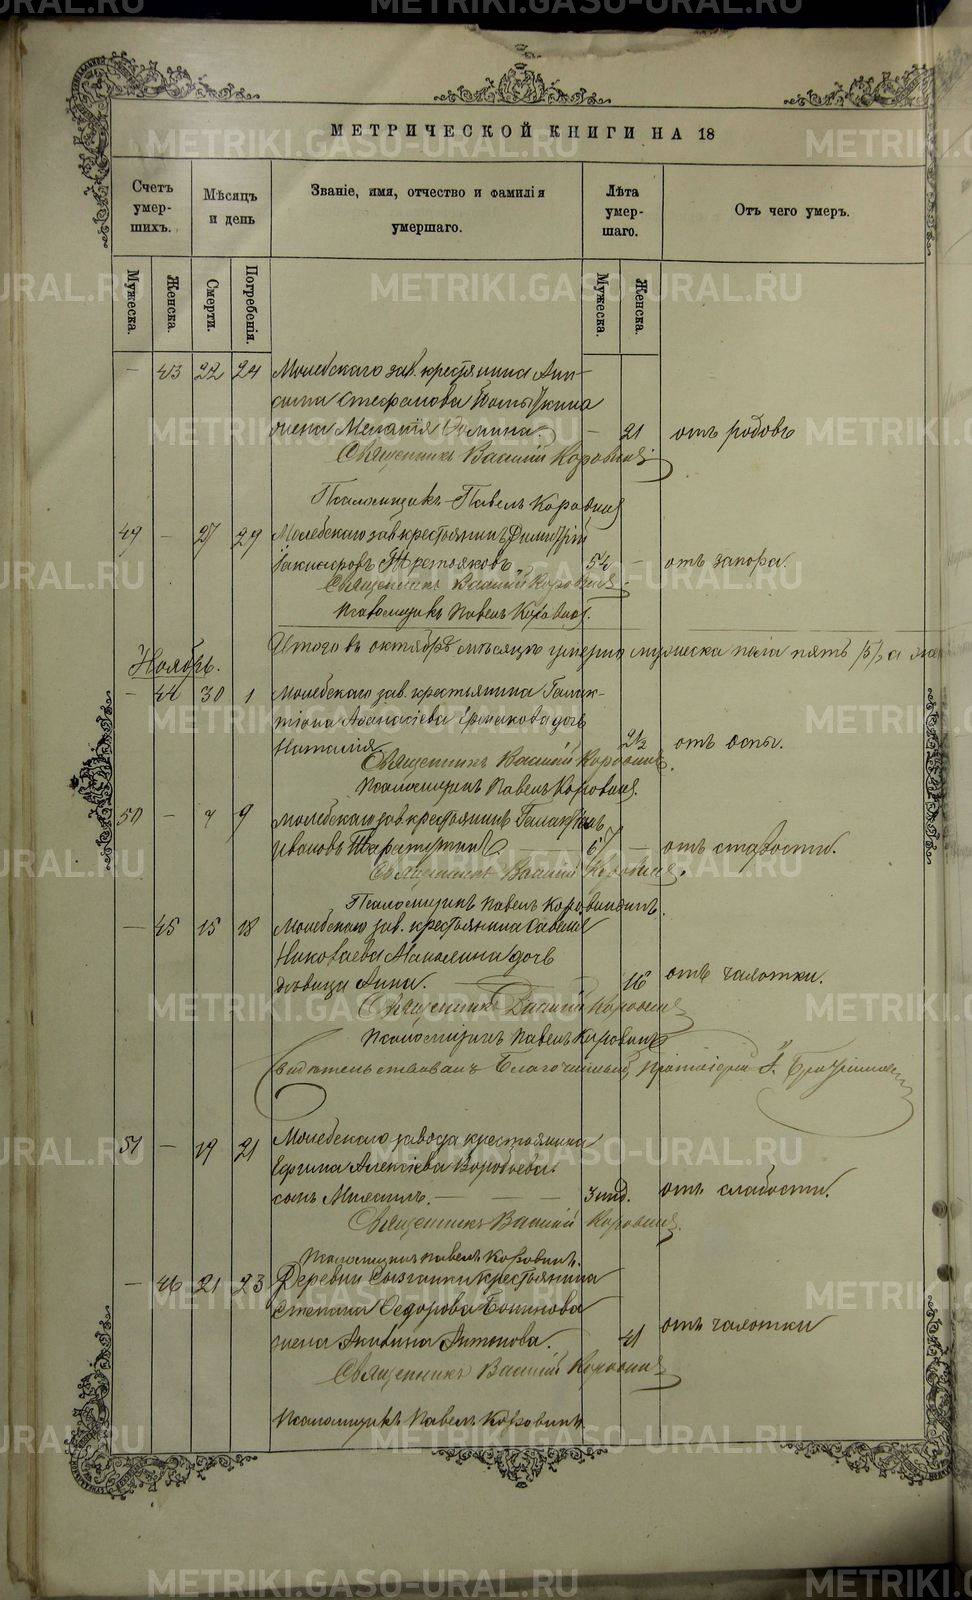 МЕТРИЧЕСКОЙ КНИГИ НА 18
Счетъ умер-шихъ.
Мѣсяцъ и день
Званіе, имя, отчество и фамилія умершаго.
Лѣта умер-шаго.
Отъ чего умеръ.
Мужеска.
Женска.
Смерти.
Погребенія.
Мужеска.
Женска.
— 43 22 24 Молебскаго зав. крестьянина
Стефанова
жена Меланія — 21 отъ родовъ
Священникъ Василій Коровинъ
Псаломщикъ Павелъ Коровинъ
49 — 27 29 Молебскаго зав крестьянинъ Димитрій
Третьяковъ 54 — отъ запора.
Священникъ Василій Коровинъ
Псаломщикъ Павелъ Коровинъ.
Итого въ октябрѣ мѣсяцѣ умерло мужеска пола пять /5/, а
Ноябрь.
— 44 30 1 Молебскаго зав. крестьянина Галак-
тіона Аѳанасіева дочь
Наталія 2½ отъ оспы.
Священникъ Василій Коровинъ.
Псаломщикъ Павелъ Коровинъ.
50 — 7 9 Молебскаго зав крестьянинъ Галактіонъ
Ивановъ 67 — отъ старости.
Священникъ Василій Коровинъ.
Псаломщикъ Павелъ Коровинъ.
— 45 15 18 Молебскаго зав. крестьянина Савелія
Николаева дочь
дѣвица Анна. 16 отъ чахотки.
Священникъ Василій Коровинъ
Псаломщикъ Павелъ Коровинъ
Свидѣтельствовалъ Благочинный, Протоіерей
51 — 19 21 Молебскаго завода крестьянина
Ефима Алексіева Воробьева
сынъ Михаилъ. — — — 3 нед. отъ слабости.
Священникъ Василій Коровинъ.
Псаломщикъ Павелъ Коровинъ.
— 46 21 23 Деревни крестьянина
Степана Ѳедорова
жена Акилина Антонова. 41 отъ чахотки
Священникъ Василій Коровинъ
Псаломщикъ Павелъ Коровинъ
METRIKI.GASO-URAL.RU